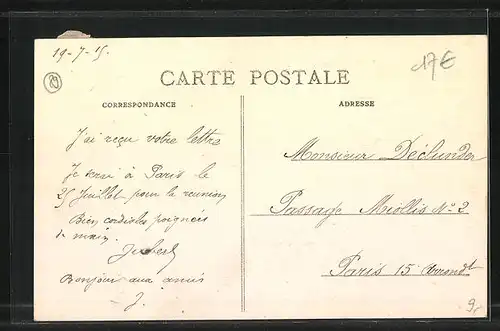 19-7-15.
89
17€
CARTE POSTALE
CORRESPONDANCE
ADRESSE
J'ai reçu votre lettre
Je serai à Paris le
25 Juillet pour la reunion
Bien cordiales poignees
de main.
Bonjour aux amis
J.
Monsieur
Passage Miollis No 2
Paris 15 Arrondt
9.-